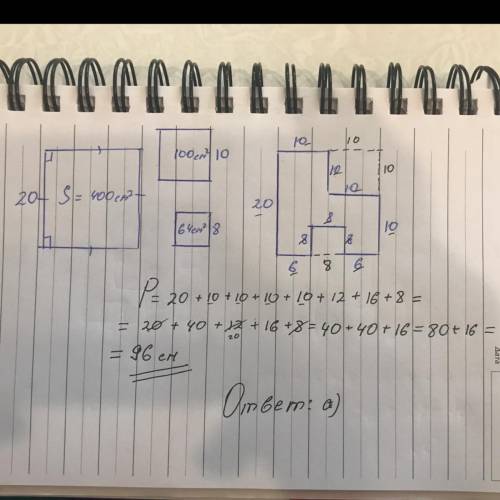 20
S = 400см²
100см² 10
64см² 8
10 10
10 10
10
20
8 10
8 8
6 8 6
P = 20 + 10 + 10 + 10 + 10 + 12 + 16 + 8 =
= 20 + 40 + 12 + 16 + 8 = 40 + 40 + 16 = 80 + 16 =
20
= 96 см
Ответ: а)
Дата